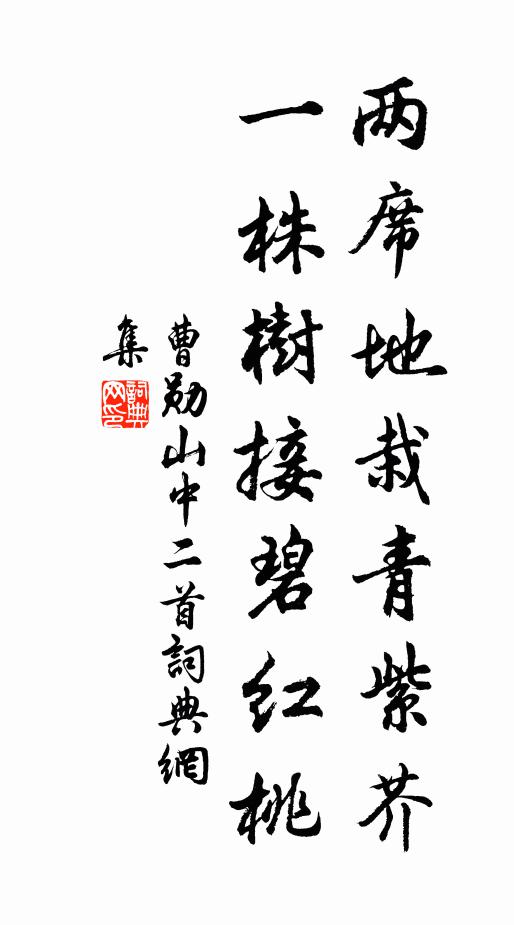 两席地栽青紫芥
一株樹接碧红桃
曹勋山中二首詞典網
集
詞典
网印